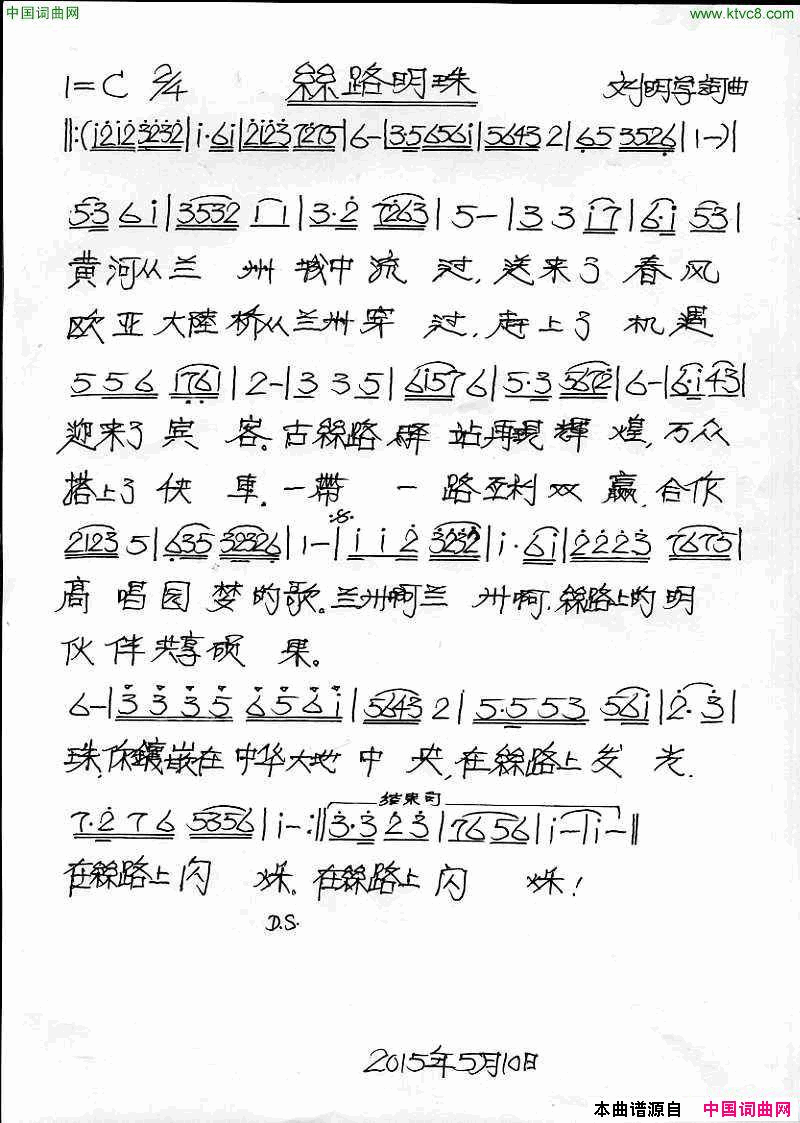 中国词曲网
www.ktvc8.com
1=C 2/4 絲路明珠 刘明学詞曲
‖:(i2i23232|i·6i|21237275|6-|356565i|56432|65 3526|1-)|
53 6i|3532 11|3·2 7263|5-|3 3 i7|6·i 53|
黄河从兰 州城中流 过,送来了春风
欧亚大陸桥从兰州穿 过,赶上了机遇
556 1761|2-|335|61576|5·3 5672|6-|6·i43|
迎来了宾 客。古絲路驿站再現輝煌,万众
搭上了快車。一帶 一路互利双赢,合作
2123 5|635 32326|1-|i i 2 3232|i·6i|2223 7675|
高唱园梦的歌。兰州啊兰 州啊,絲路上的明
伙伴共享硕 果。
6-|3335 656i|5643 2|5·553 56i|2·3|
珠,你鑲嵌在中华大地中 央,在絲路上发 光.
7·276 5356|i-:‖3·323|7656|i-|i-‖
结束句
在絲路上闪 烁。在絲路上闪 烁!
D.S.
2015年5月10日
本曲谱源自 中国词曲网